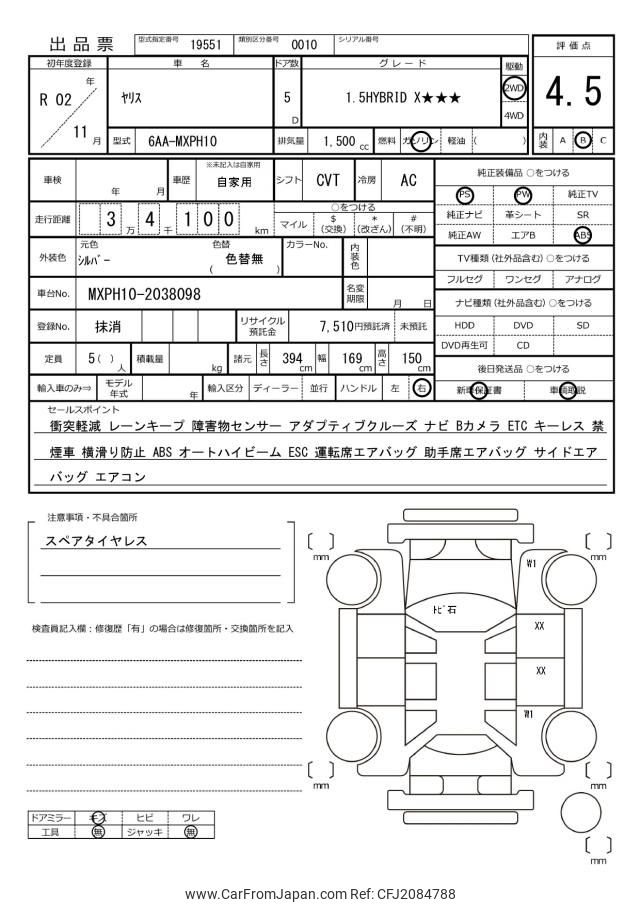 出品票 型式指定番号 19551 類別区分番号 0010 シリアル番号 評価点
初年度登録 車名 ドア数 グレード 駆動
R 02 年 ヤリス 5 D 1.5HYBRID X★★★ 2WD 4.5
4WD
11 月 型式 6AA-MXPH10 排気量 1,500 cc 燃料 ガソリン 軽油 ( ) 内装 A B C
車検 年 月 車歴 ※未記入は自家用 自家用 シフト CVT 冷房 AC
走行距離 3 万 4 千 1 0 0 km ○をつける
マイル $(交換) *(改ざん) #(不明)
外装色 元色 シルバー 色替 ( 色替無 ) カラーNo. 内装色
車台No. MXPH10-2038098 名変期限 月 日
登録No. 抹消 リサイクル預託金 7,510円預託済 未預託
定員 5( ) 人 積載量 kg 諸元 長さ 394 cm 幅 169 cm 高さ 150 cm
輸入車のみ⇒ モデル年式 年 輸入区分 ディーラー 並行 ハンドル 左 右
純正装備品 ○をつける
PS PW 純正TV
純正ナビ 革シート SR
純正AW エアB ABS
TV種類 (社外品含む) ○をつける
フルセグ ワンセグ アナログ
ナビ種類 (社外品含む) ○をつける
HDD DVD SD
DVD再生可 CD
後日発送品 ○をつける
新車保証書 車輌取説
セールスポイント
衝突軽減 レーンキープ 障害物センサー アダプティブクルーズ ナビ Bカメラ ETC キーレス 禁
煙車 横滑り防止 ABS オートハイビーム ESC 運転席エアバッグ 助手席エアバッグ サイドエア
バッグ エアコン
注意事項・不具合箇所
スペアタイヤレス
検査員記入欄：修復歴「有」の場合は修復箇所・交換箇所を記入
mm mm
W1
トビ石
XX
XX
W1
mm mm
mm
ドアミラー キズ ヒビ ワレ
工具 無 ジャッキ 無
www.CarFromJapan.com Ref: CFJ2084788